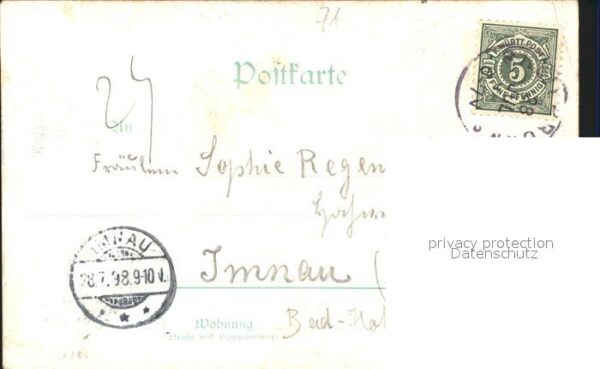 71
Postkarte
5
FÜNF PFENNIG
24
An
Fräulein Sophie Regen
privacy protection
Datenschutz
IMNAU
28.7.98.9-10 V.
Imnau (
Wohnung
(Straße und Hausnummer)
Bad-Hot